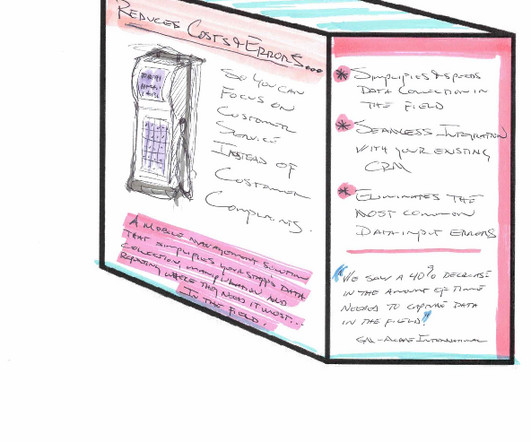 REDUCES COSTS & ERRORS...
SO YOU CAN
FOCUS ON
CUSTOMER
SERVICE
INSTEAD OF
CUSTOMER
COMPLAINTS.
A MOBILE MANAGEMENT SOLUTION
THAT SIMPLIFIES YOUR STAFF'S DATA
COLLECTION, MANIPULATION AND
REPORTING WHERE THEY NEED IT MOST...
IN THE FIELD.
* SIMPLIFIES & SPEEDS
DATA COLLECTION IN
THE FIELD
* SEAMLESS INTEGRATION
WITH YOUR EXISTING
CRM
* ELIMINATES THE
MOST COMMON
DATA-INPUT ERRORS
"WE SAW A 40% DECREASE
IN THE AMOUNT OF TIME
NEEDED TO CAPTURE DATA
IN THE FIELD"
INTERNATIONAL